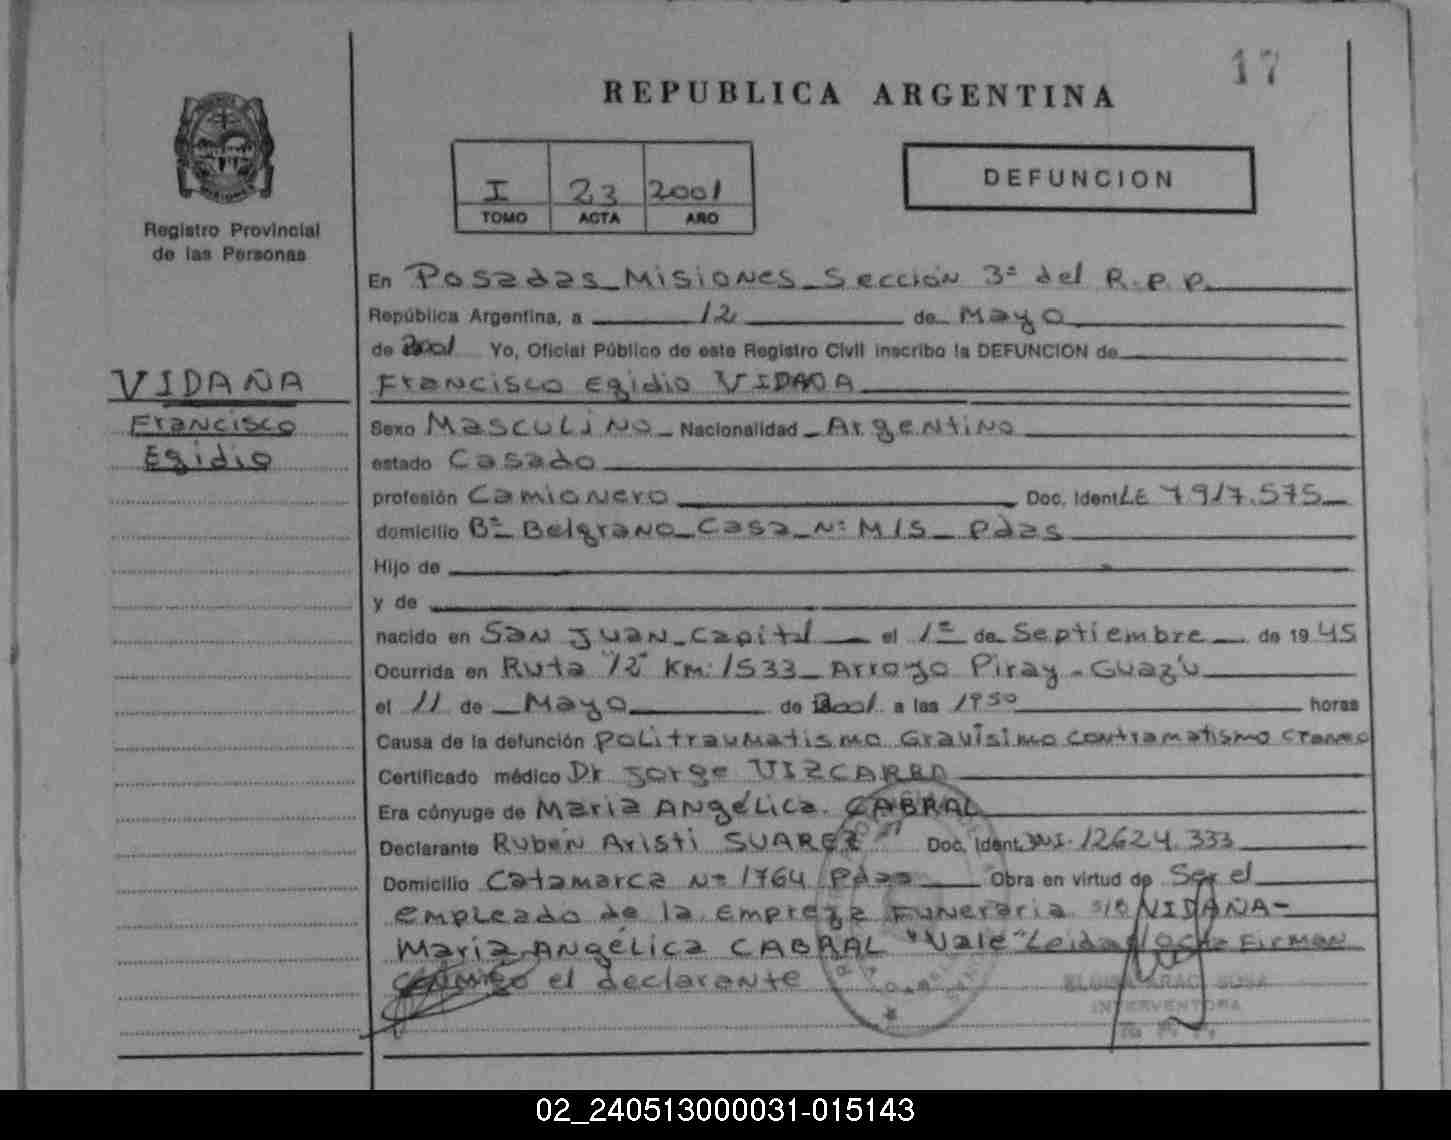 17
REPUBLICA ARGENTINA
I 23 2001
TOMO ACTA AÑO
DEFUNCION
Registro Provincial
de las Personas
En Posadas Misiones Sección 3ª del R.P.P.
República Argentina, a 12 de Mayo
de 2001 Yo, Oficial Público de este Registro Civil inscribo la DEFUNCION de
VIDAÑA
Francisco
Egidio
Francisco Egidio VIDAÑA
Sexo Masculino Nacionalidad Argentino
estado Casado
profesión Camionero Doc. Ident. LE 7917.575
domicilio Bº Belgrano Casa Nº M15 Pdas
Hijo de
y de
nacido en San Juan Capital el 1º de Septiembre de 1945
Ocurrida en Ruta "12" Km: 1533 Arroyo Piray-Guazú
el 11 de Mayo de 2001 a las 1950 horas
Causa de la defunción Politraumatismo Gravísimo Contramatismo Craneo
Certificado médico Dr Jorge VIZCARRA
Era cónyuge de Maria Angélica CABRAL
Declarante Rubén Aristi SUAREZ Doc. Ident. DNI. 12624.333
Domicilio Catamarca Nº 1764 Pdas Obra en virtud de Ser el
empleado de la Empresa Funeraria S/R VIDAÑA-
Maria Angélica CABRAL "Vale" Leida el Acta Firman
conmigo el declarante
SOSA
INTERVENTORA
02_240513000031-015143